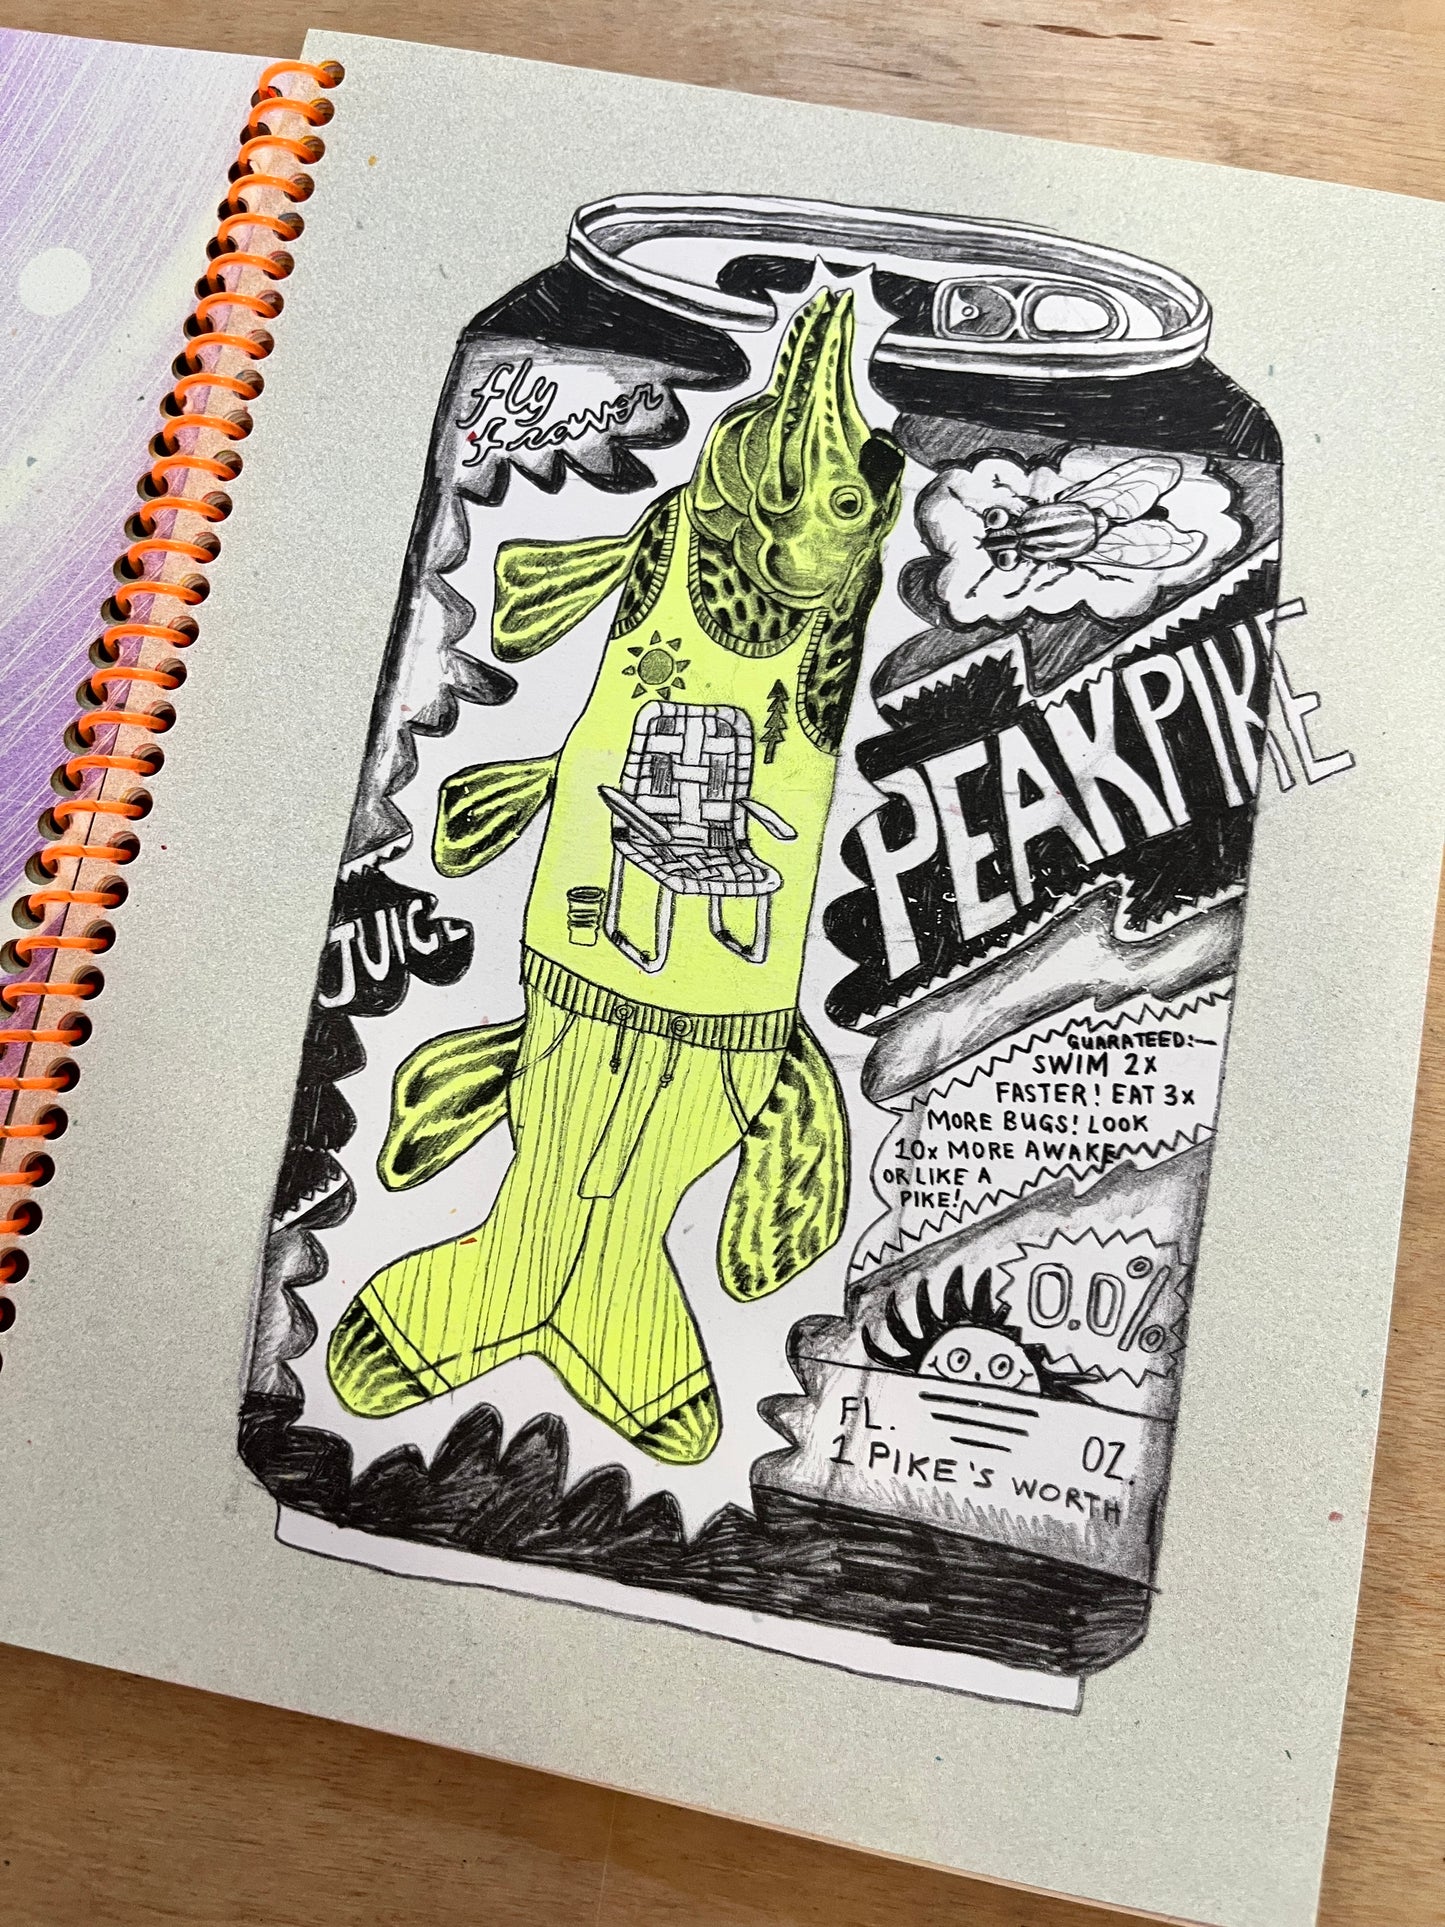 fly
fravor
PEAKPIKE
JUICE
GUARATEED:-
SWIM 2x
FASTER! EAT 3x
MORE BUGS! LOOK
10x MORE AWAKE
OR LIKE A
PIKE!
0.0%
FL. OZ.
1 PIKE'S WORTH